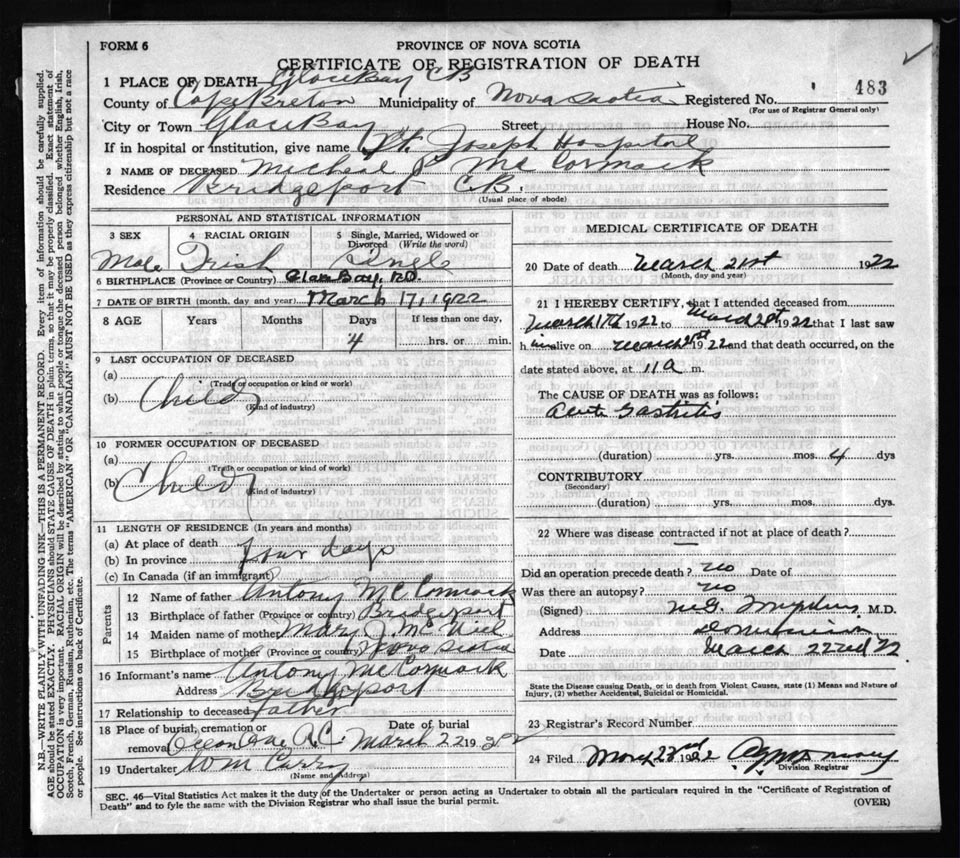 FORM 6
PROVINCE OF NOVA SCOTIA
CERTIFICATE OF REGISTRATION OF DEATH
483
1 PLACE OF DEATH— Glace Bay CB
County of Cape Breton Municipality of Nova Scotia Registered No.
(For use of Registrar General only)
City or Town Glace Bay Street House No.
If in hospital or institution, give name St. Joseph Hospital
2 NAME OF DECEASED Micheal McCormack
Residence Bridgeport C.B.
(Usual place of abode)
PERSONAL AND STATISTICAL INFORMATION
3 SEX
Male
4 RACIAL ORIGIN
Irish
5 Single, Married, Widowed or Divorced (Write the word)
Single
6 BIRTHPLACE (Province or Country) Glace Bay,
7 DATE OF BIRTH (month, day and year) March 17, 1922
8 AGE Years Months Days If less than one day,
4 hrs. or min.
9 LAST OCCUPATION OF DECEASED
(a)
(Trade or occupation or kind or work)
(b) Child
(Kind of industry)
10 FORMER OCCUPATION OF DECEASED
(a)
(Trade or occupation or kind or work)
(b) Child
(Kind of industry)
11 LENGTH OF RESIDENCE (In years and months)
(a) At place of death four days
(b) In province
(c) In Canada (if an immigrant)
Parents
12 Name of father Antony McCormack
13 Birthplace of father (Province or country) Bridgeport
14 Maiden name of mother Mary J. McNiel
15 Birthplace of mother (Province or country) Nova Scotia
16 Informant's name Antony McCormack
Address Bridgeport
17 Relationship to deceased father
18 Place of burial, cremation or removal R.C. Date of burial March 22 192
19 Undertaker Wm Curry
(Name and Address)
MEDICAL CERTIFICATE OF DEATH
20 Date of death March 21st 1922
(Month, day and year)
21 I HEREBY CERTIFY, that I attended deceased from
March 17th 1922 to March 21st 1922 that I last saw
him alive on March 21st 1922 and that death occurred, on the
date stated above, at 11 a m.
The CAUSE OF DEATH was as follows:
Acute Gastritis
(duration) yrs. mos. 4 dys
CONTRIBUTORY
(Secondary)
(duration) yrs. mos. dys.
22 Where was disease contracted if not at place of death?
Did an operation precede death? no Date of
Was there an autopsy? no
(Signed) M.D.
Address Dominion
Date March 22nd 22
State the Disease causing Death, or in death from Violent Causes, state (1) Means and Nature of Injury, (2) whether Accidental, Suicidal or Homicidal.
23 Registrar's Record Number
24 Filed March 22nd 1922
Division Registrar
SEC. 46—Vital Statistics Act makes it the duty of the Undertaker or person acting as Undertaker to obtain all the particulars required in the "Certificate of Registration of
Death" and to fyle the same with the Division Registrar who shall issue the burial permit.
(OVER)
N.B.—WRITE PLAINLY WITH UNFADING INK—THIS IS A PERMANENT RECORD. Every item of information should be carefully supplied.
AGE should be stated EXACTLY. PHYSICIANS should STATE CAUSE OF DEATH in plain terms, so that it may be properly classified. Exact statement of
OCCUPATION is very important. RACIAL ORIGIN will be described by stating to what people or tongue the deceased person belonged, whether English, Irish,
Scotch, French, German, Russian, Ruthenian, etc. The terms "AMERICAN" OR "CANADIAN" MUST NOT BE USED as they express citizenship but not a race
or people. See instructions on back of Certificate.